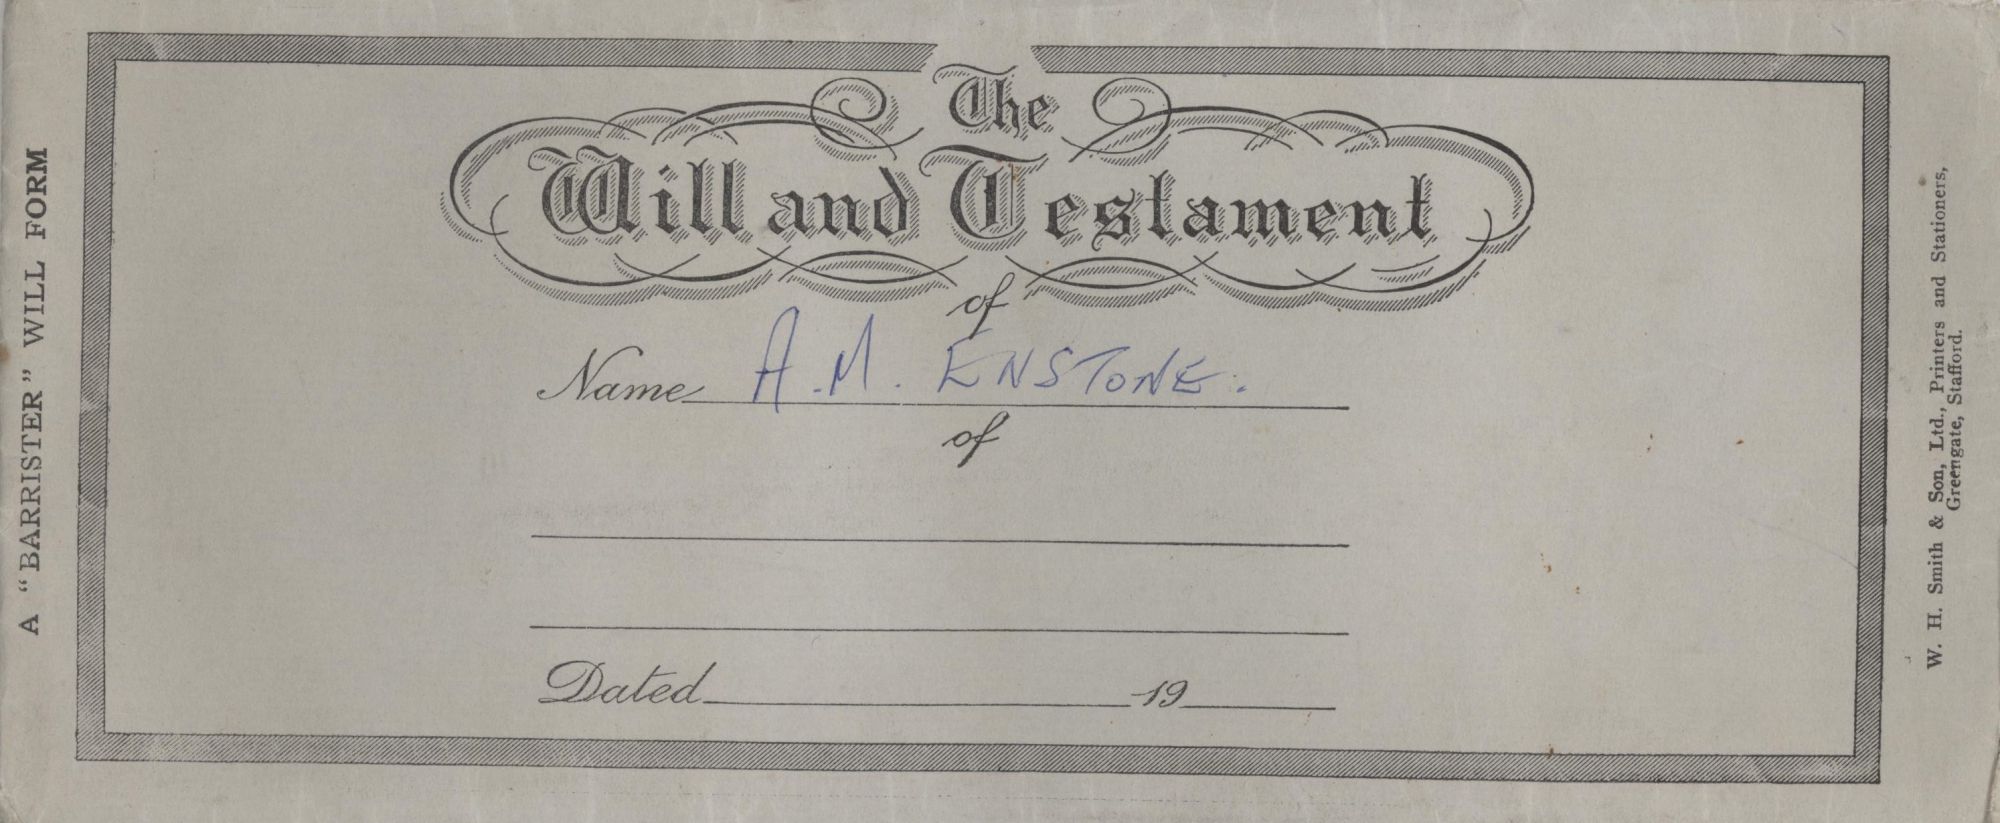 A "BARRISTER" WILL FORM
The
Will and Testament
of
Name A.M. ENSTONE.
of
Dated 19
W. H. Smith & Son, Ltd., Printers and Stationers,
Greengate, Stafford.